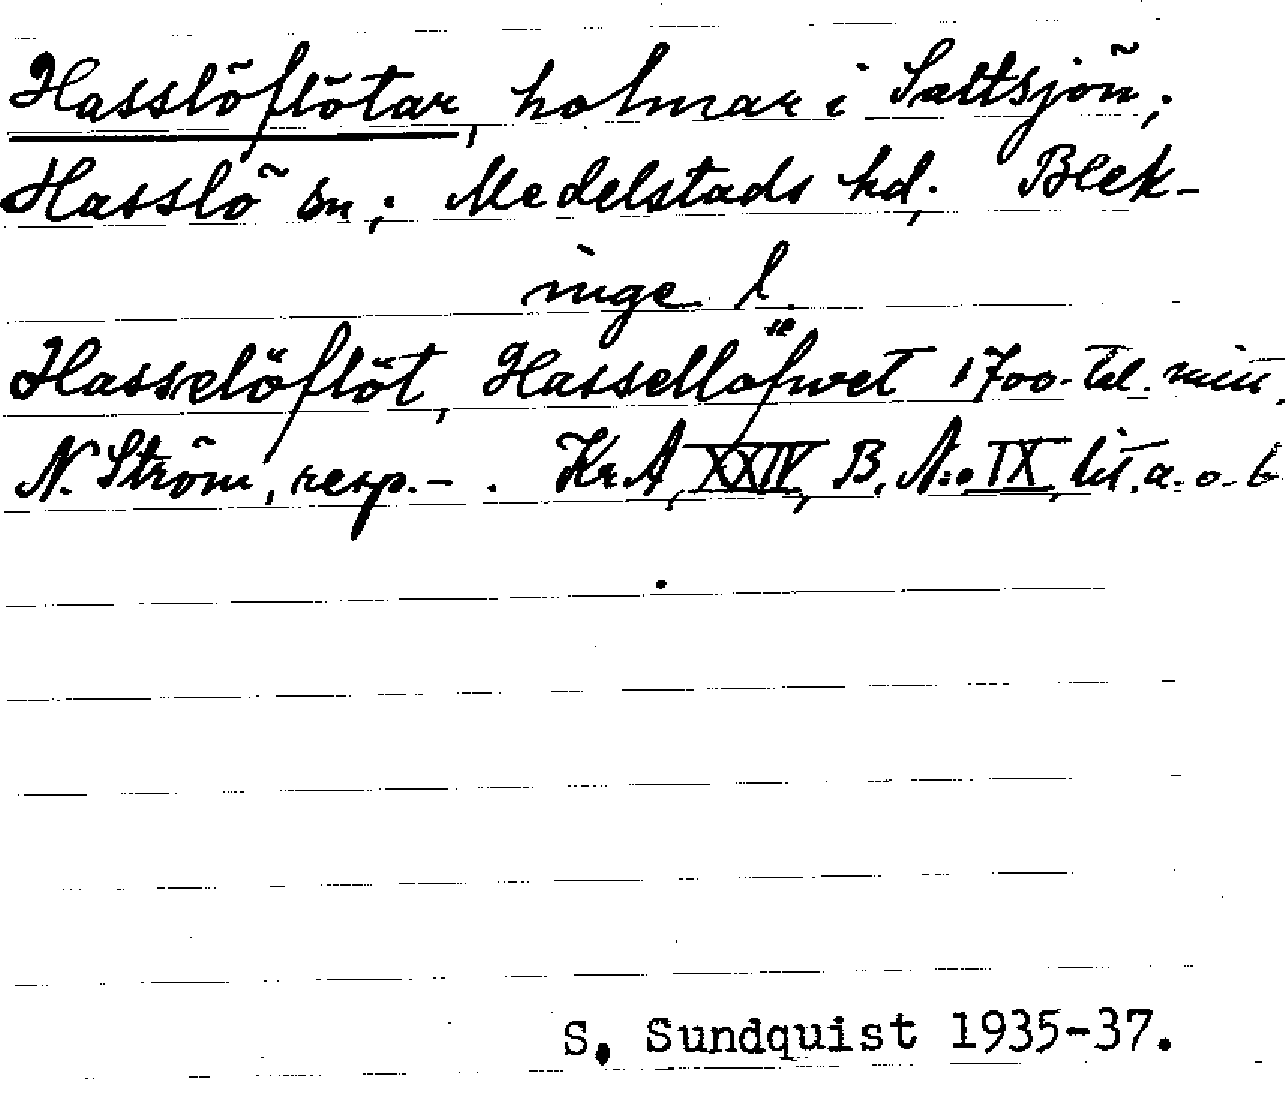 Hasslöflötar, holmar i Saltsjön;
Hasslö sn; Medelstads hd. Blek-
inge l.
Hasselöflöt, Hassellöfwet 1700-tal. mitt.
N. Ström, resp. - . Kr.A, XXIV, B, N:o IX, lit. a. o. b
S. Sundquist 1935-37.